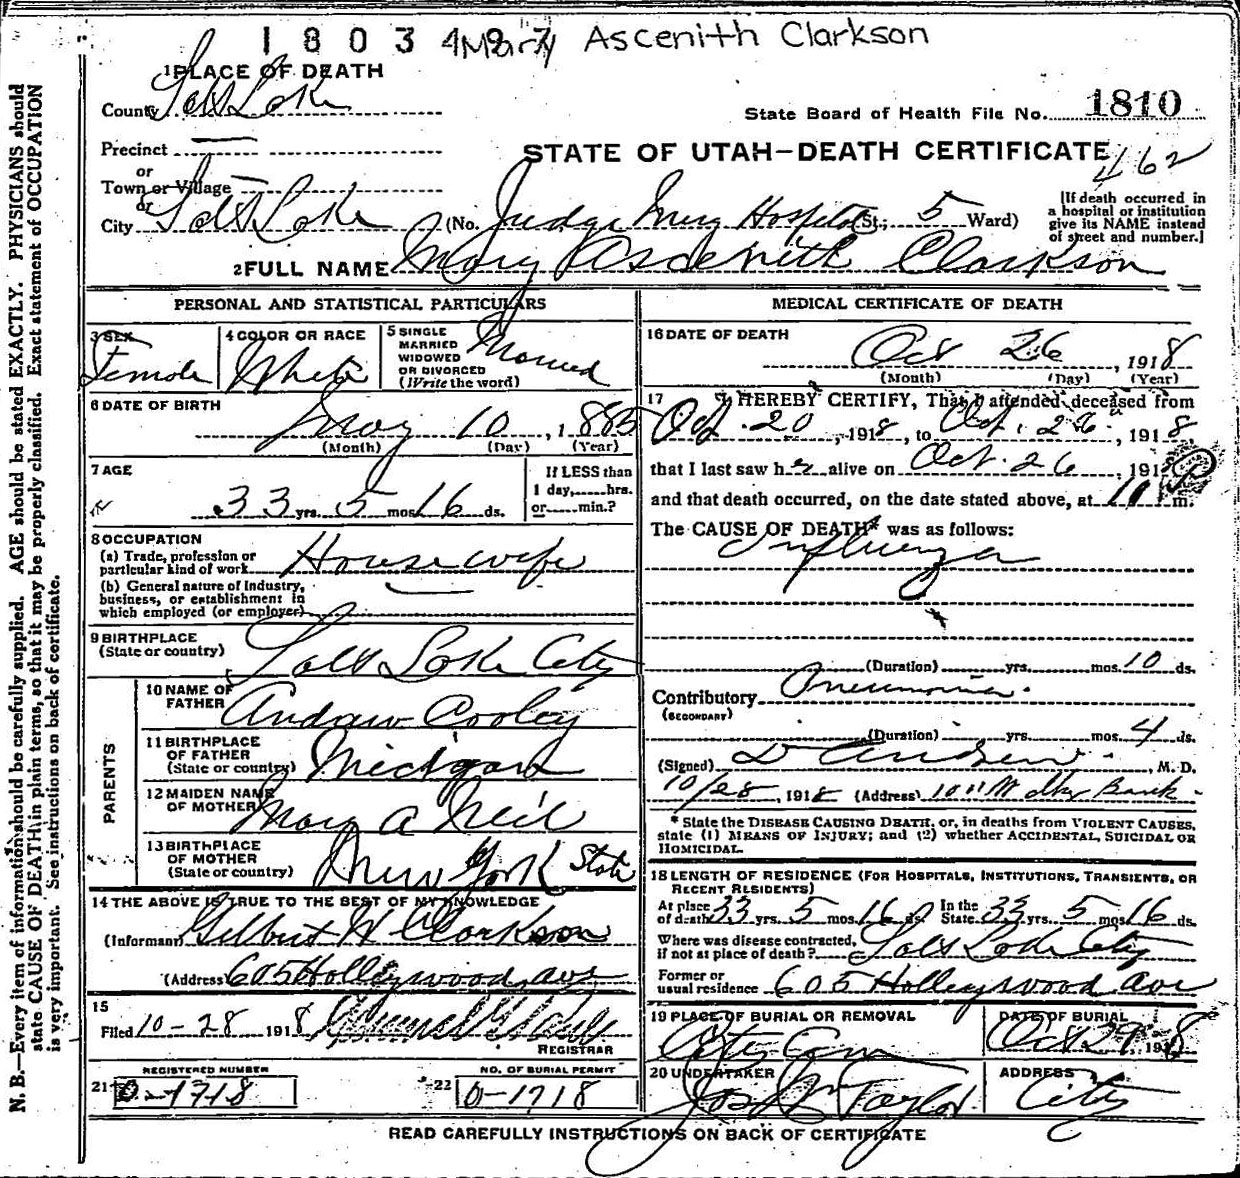 1803 Mary Ascenith Clarkson
1 PLACE OF DEATH
County Salt Lake
State Board of Health File No. 1810
Precinct —
or
Town or Village —
or
STATE OF UTAH—DEATH CERTIFICATE
462
City Salt Lake (No. Judge Mercy Hospital St.; 5 Ward)
[If death occurred in
a hospital or institution
give its NAME instead
of street and number.]
2 FULL NAME Mary Ascenith Clarkson
PERSONAL AND STATISTICAL PARTICULARS
3 SEX
Female
4 COLOR OR RACE
White
5 SINGLE
MARRIED
WIDOWED
OR DIVORCED
(Write the word)
Married
6 DATE OF BIRTH
May 10, 1885
(Month) (Day) (Year)
7 AGE
33 yrs. 5 mos. 16 ds.
If LESS than
1 day,......hrs.
or......min.?
8 OCCUPATION
(a) Trade, profession or
particular kind of work Housewife
(b) General nature of industry,
business, or establishment in
which employed (or employer)
9 BIRTHPLACE
(State or country) Salt Lake City
PARENTS
10 NAME OF
FATHER Andrew Cooley
11 BIRTHPLACE
OF FATHER
(State or country)
12 MAIDEN NAME
OF MOTHER Mary A Neil
13 BIRTHPLACE
OF MOTHER
(State or country) New York State
14 THE ABOVE IS TRUE TO THE BEST OF MY KNOWLEDGE
(Informant) Gilbert W Clarkson
(Address) 605 Holleywood ave
15
Filed 10-28 1918
REGISTRAR
REGISTERED NUMBER
21 0-1718
NO. OF BURIAL PERMIT
22 0-1718
MEDICAL CERTIFICATE OF DEATH
16 DATE OF DEATH
Oct 26, 1918
(Month) (Day) (Year)
17 I HEREBY CERTIFY, That I attended deceased from
Oct. 20, 1918, to Oct. 26, 1918,
that I last saw her alive on Oct. 26, 1918
and that death occurred, on the date stated above, at 11 P m.
The CAUSE OF DEATH* was as follows:
Influenza
(Duration) yrs. mos. 10 ds.
Contributory Pneumonia
(SECONDARY)
(Duration) yrs. mos. 4 ds.
(Signed) M. D.
10/28, 1918 (Address) 1011 Walker Bank
* State the DISEASE CAUSING DEATH, or, in deaths from VIOLENT CAUSES,
state (1) MEANS OF INJURY; and (2) whether ACCIDENTAL, SUICIDAL OR
HOMICIDAL.
18 LENGTH OF RESIDENCE (FOR HOSPITALS, INSTITUTIONS, TRANSIENTS, OR
RECENT RESIDENTS)
At place
of death 33 yrs. 5 mos. 16 ds. In the
State 33 yrs. 5 mos. 16 ds.
Where was disease contracted,
if not at place of death? Salt Lake City
Former or
usual residence 605 Holleywood ave
19 PLACE OF BURIAL OR REMOVAL
City Cem
DATE OF BURIAL
Oct 29 1918
20 UNDERTAKER
Jos Wm Taylor
ADDRESS
City
READ CAREFULLY INSTRUCTIONS ON BACK OF CERTIFICATE
N. B.—Every item of information should be carefully supplied. AGE should be stated EXACTLY. PHYSICIANS should
state CAUSE OF DEATH in plain terms, so that it may be properly classified. Exact statement of OCCUPATION
is very important. See instructions on back of certificate.